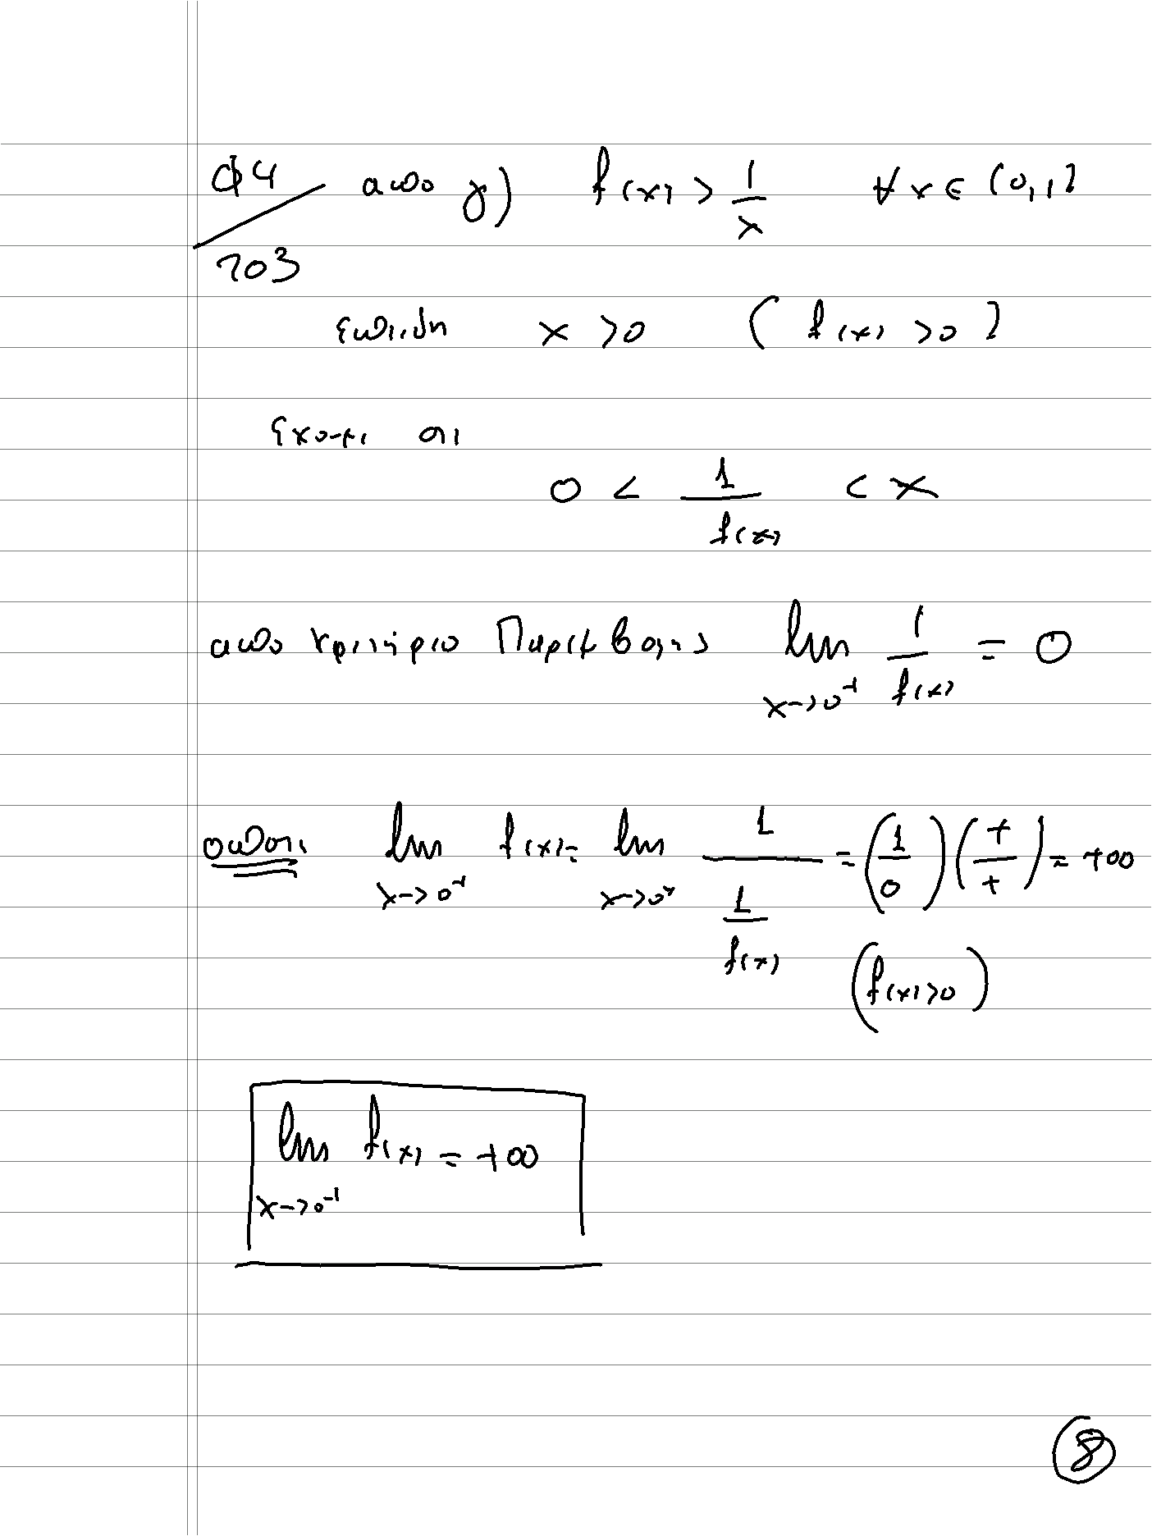 Φ4 απο γ) f(x) > 1/x ∀ x ∈ (0,1)
703
επειδη x > 0 ( f(x) > 0 )
εχουμε οτι
0 < 1/f(x) < x
απο κριτηριο Παρεμβολης lim x→0⁺ 1/f(x) = 0
οποτε lim x→0⁺ f(x) = lim x→0⁺ 1/(1/f(x)) = (1/0)(+/+) = +∞
(f(x)>0)
lim x→0⁺ f(x) = +∞
8